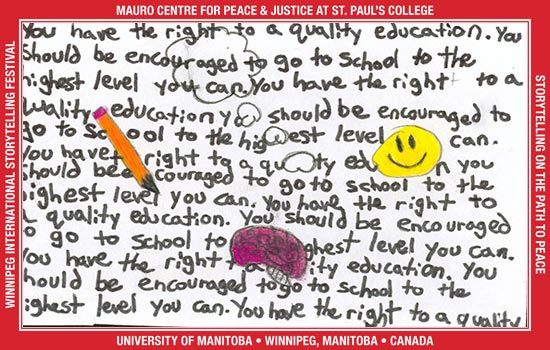 MAURO CENTRE FOR PEACE & JUSTICE AT ST. PAUL'S COLLEGE
WINNIPEG INTERNATIONAL STORYTELLING FESTIVAL
You have the right to a quality education. You
should be encouraged to go to school to the
highest level you can. You have the right to a
quality education y should be encouraged to
go to Sc ool to the hig est level can.
You have right to a qu ty edu n you
should be couraged to go to school to the
highest level you can. You have the right to
a quality education. You should be encouraged
to go to School to ghest level you can.
You have the right ity education. You
should be encouraged to go to school to the
highest level you can. You have the right to a quality
STORYTELLING ON THE PATH TO PEACE
UNIVERSITY OF MANITOBA • WINNIPEG, MANITOBA • CANADA